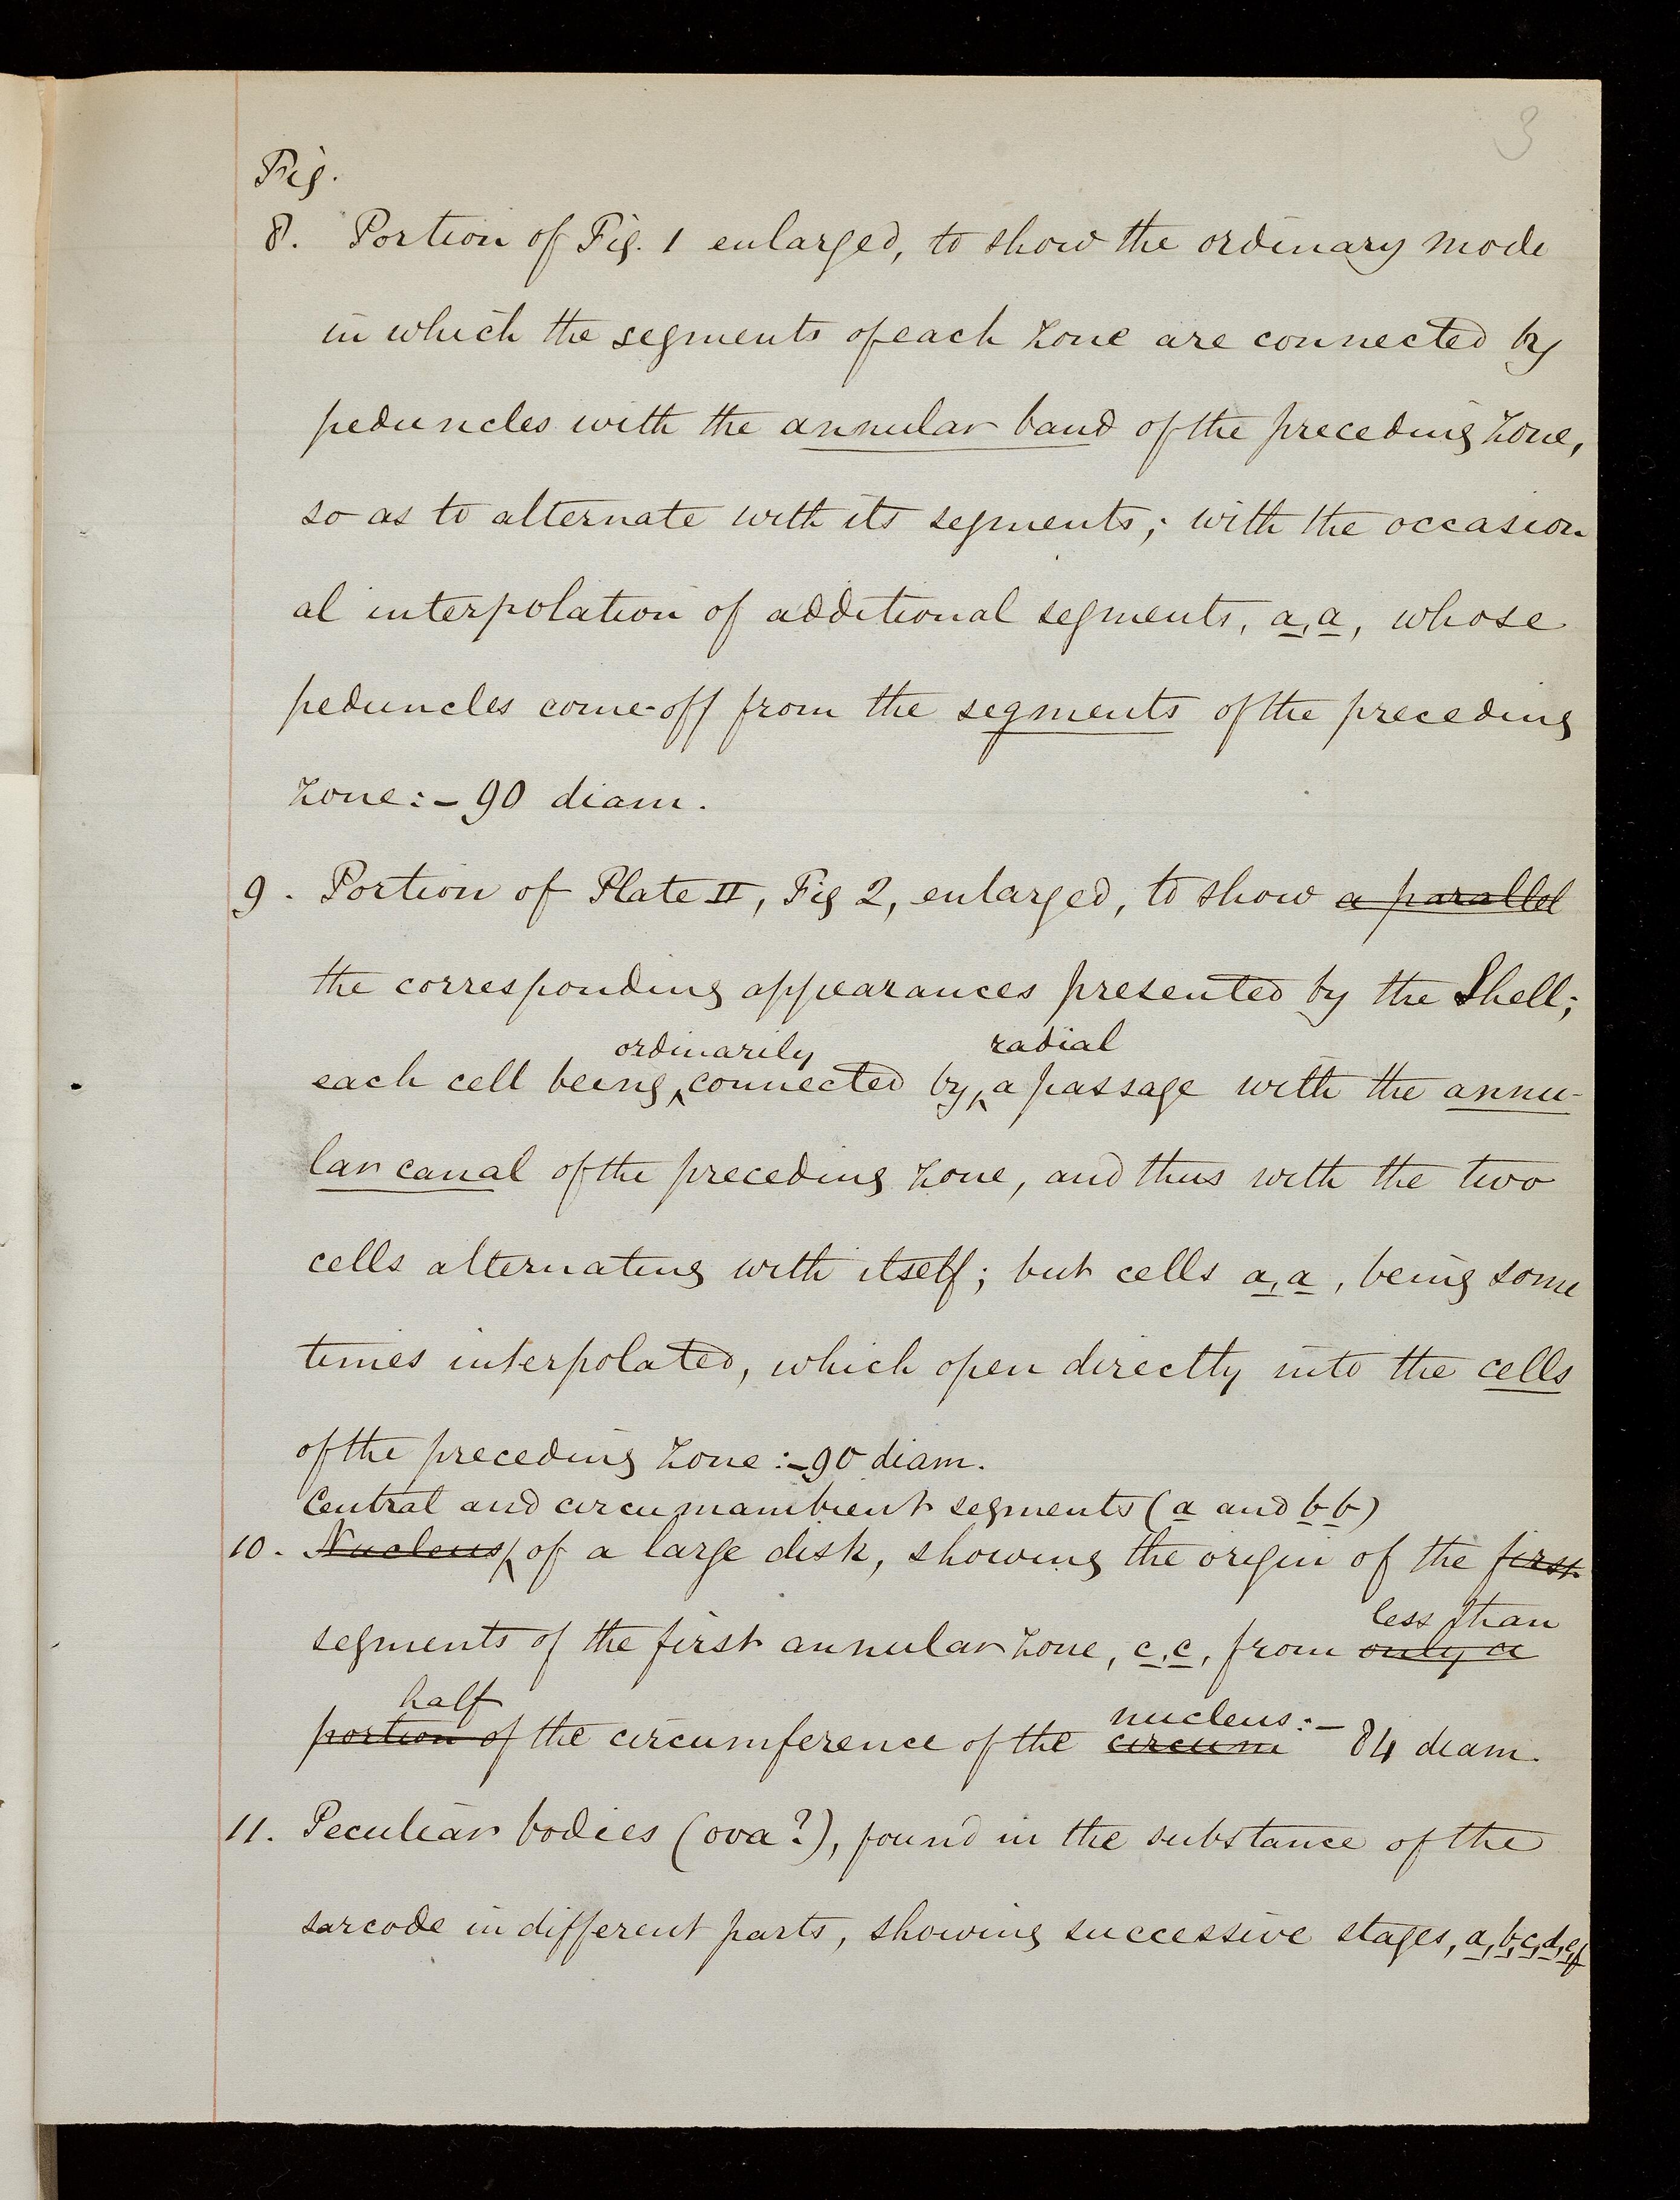 3
Fig.
8. Portion of Fig. 1 enlarged, to show the ordinary mode
in which the segments of each zone are connected by
peduncles with the annular band of the preceding zone,
so as to alternate with its segments; with the occasion
al interpolation of additional segments, a, a, whose
peduncles come-off from the segments of the preceding
zone:- 90 diam.
9. Portion of Plate II, Fig 2, enlarged, to show a parallel
the corresponding appearances presented by the Shell;
ordinarily radial
each cell being connected by a passage with the annu-
lar canal of the preceding zone, and thus with the two
cells alternating with itself; but cells a, a, being some
times interpolated, which open directly into the cells
of the preceding zone:- 90 diam.
Central and circumambient segments (a and b b)
10. Nucleus of a large disk, showing the origin of the first
less than
segments of the first annular zone, c, c, from only a
half nucleus:-
portion of the circumference of the circum 84 diam.
11. Peculiar bodies (ova?), found in the substance of the
sarcode in different parts, showing successive stages, a, b, c, d, e, f